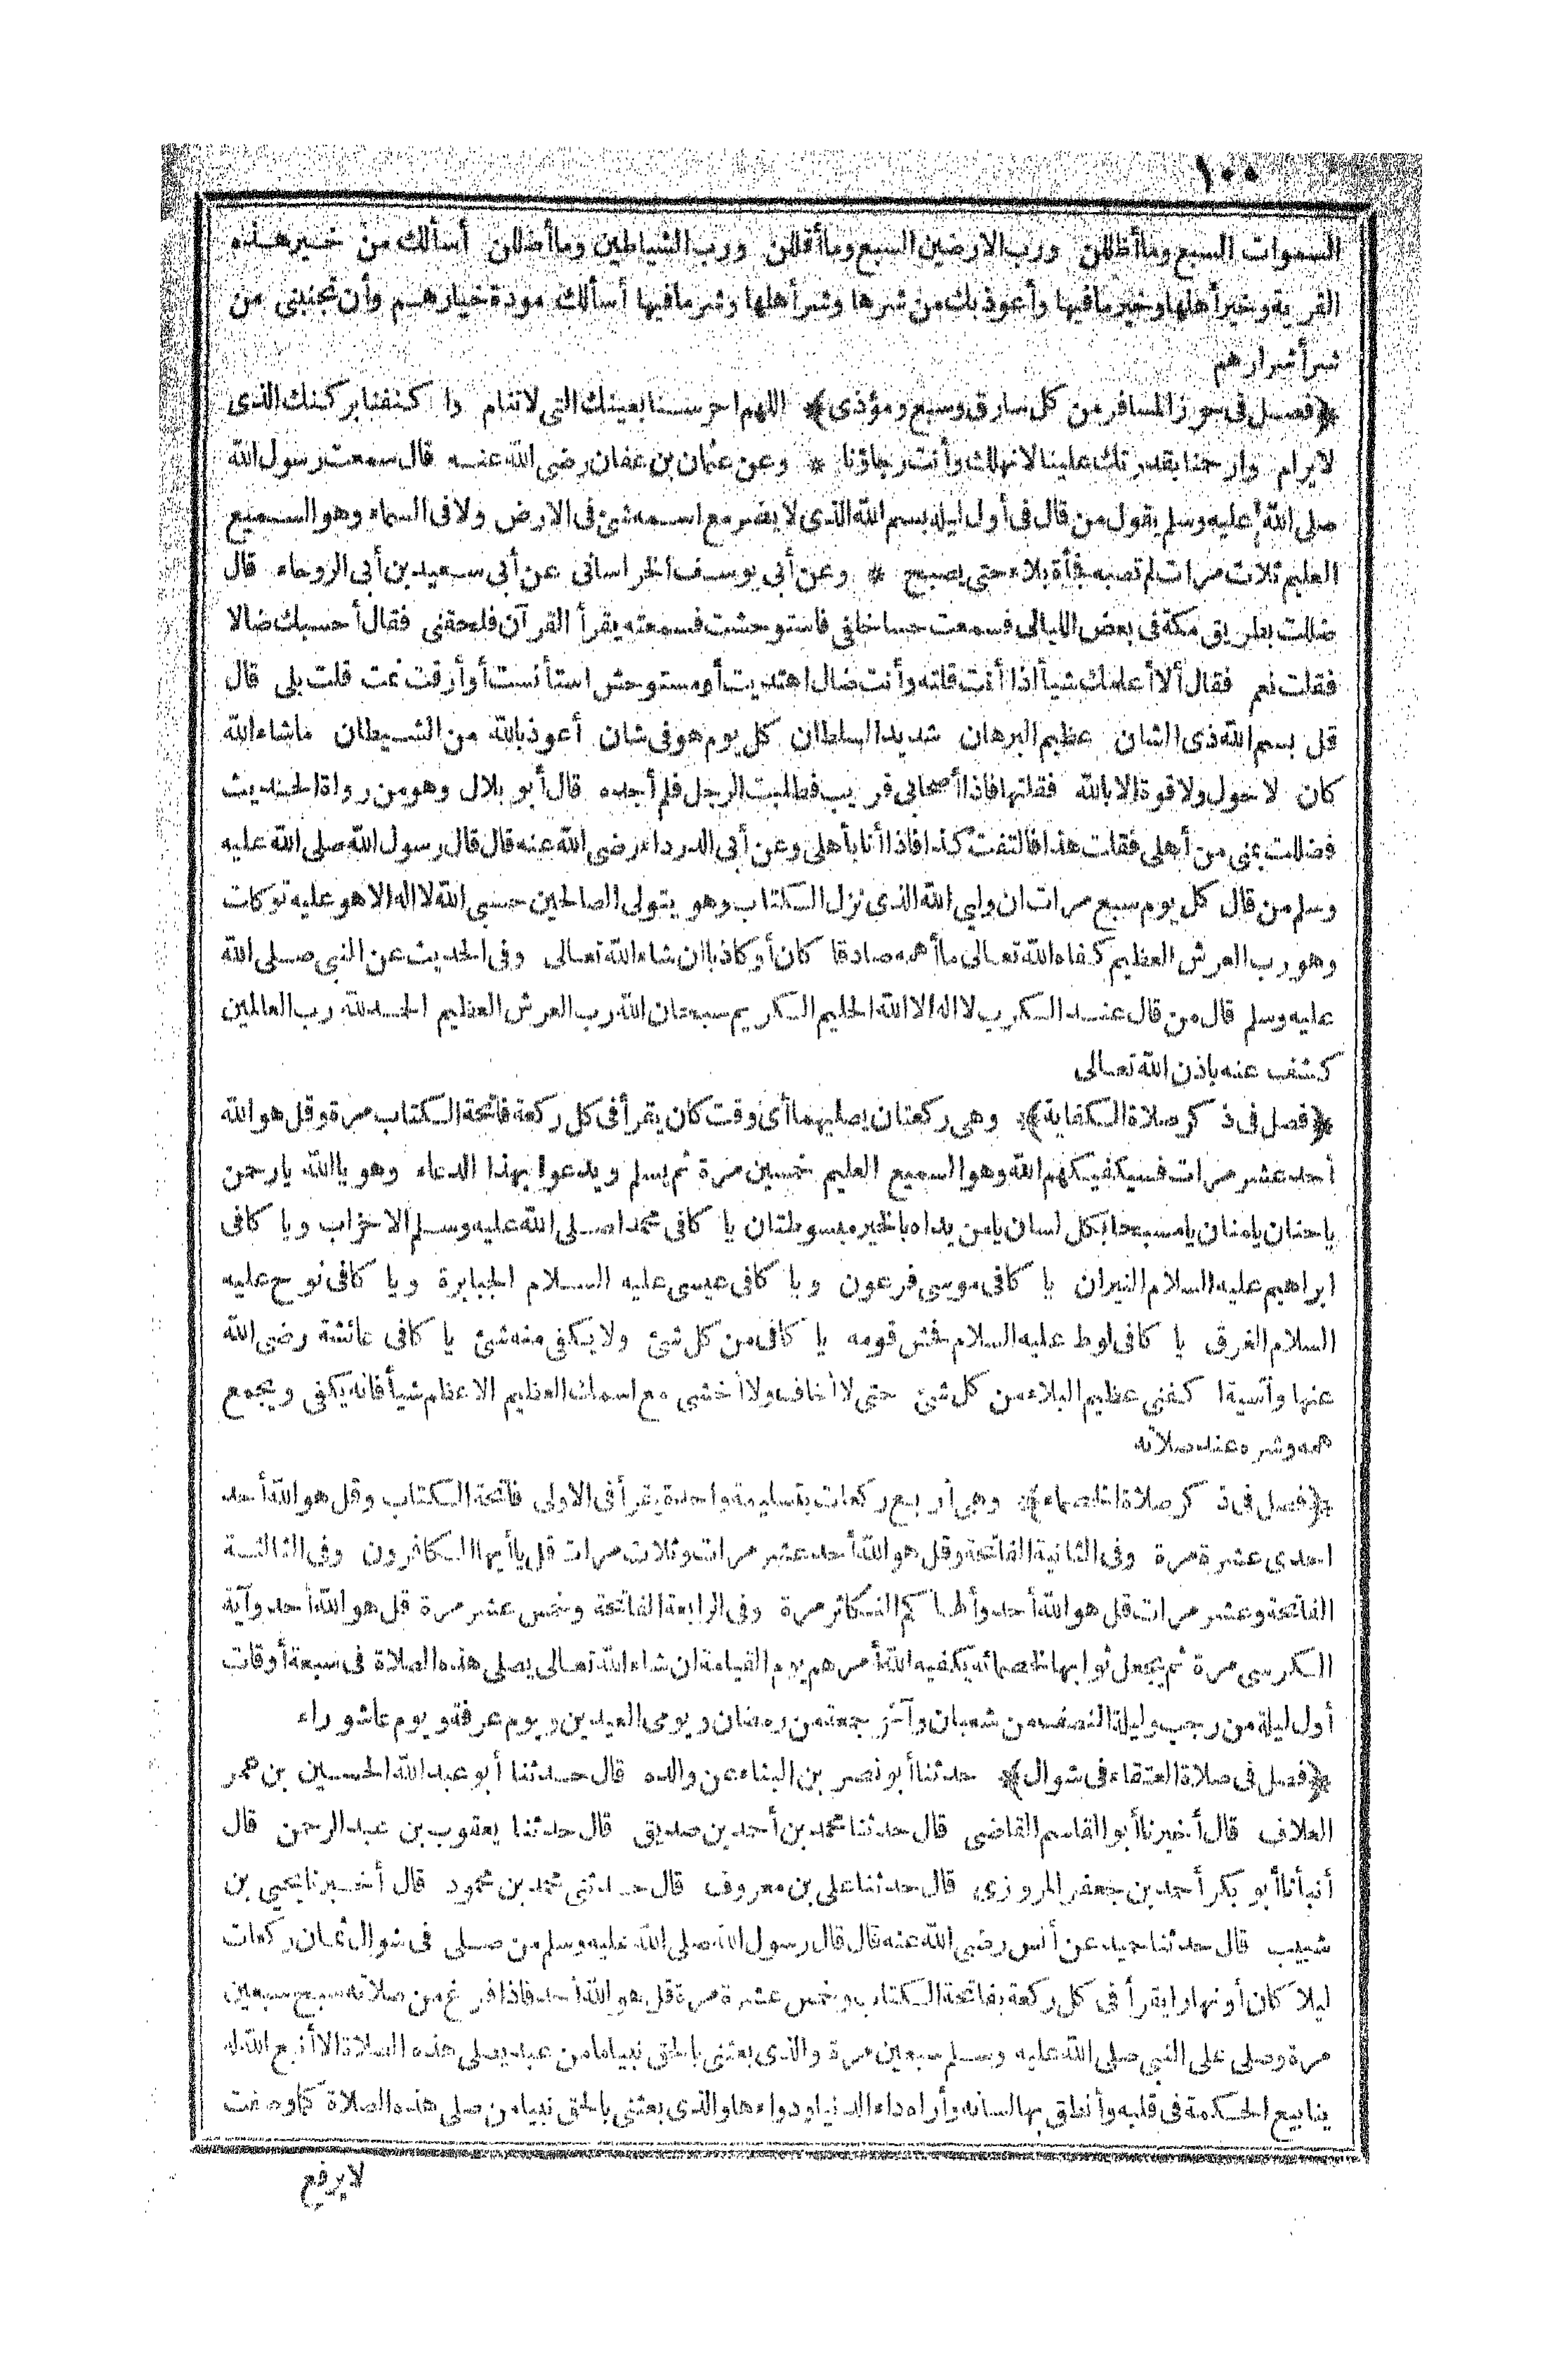 ١٠٠
السموات السبع وما أظللن ورب الارضين السبع وما أقللن ورب الشياطين وما أضللن أسألك من خير هذه
القرية وخير أهلها وخير ما فيها وأعوذ بك من شرها وشر أهلها وشر ما فيها أسألك مودة خيارهم وأن تجنبنى من
شر أشرارهم
﴿فصل فى حوز المسافر من كل سارق وسبع ومؤذى﴾ اللهم احرسنا بعينك التى لا تنام واكنفنا بركنك الذى
لا يرام وارحمنا بقدرتك علينا لا نهلك وأنت رجاؤنا * وعن عثمان بن عفان رضى الله عنه قال سمعت رسول الله
صلى الله عليه وسلم يقول من قال فى أول ليله بسم الله الذى لا يضر مع اسمه شئ فى الارض ولا فى السماء وهو السميع
العليم ثلاث مرات لم تصبه فجأة بلاء حتى يصبح * وعن أبى يوسف الخراسانى عن أبى سعيد بن أبى الروحاء قال
ضللت بطريق مكة فى بعض الليالى فسمعت حسا خلفى فاستوحشت فسمعته يقرأ القرآن فلحقنى فقال أحسبك ضالا
فقلت نعم فقال ألا أعلمك شيأ اذا أنت قلته وأنت ضال اهتديت أو مستوحش استأنست أو أرقت نمت قلت بلى قال
قل بسم الله ذى الشان عظيم البرهان شديد السلطان كل يوم هو فى شان أعوذ بالله من الشيطان ما شاء الله
كان لا حول ولا قوة الا بالله فقلتها فاذا أصحابى قريب فطلبت الرجل فلم أجده قال أبو بلال وهو من رواة الحديث
فضللت بمنى من أهلى فقلت هذا فالتفت كذا فاذا أنا بأهلى وعن أبى الدرداء رضى الله عنه قال قال رسول الله صلى الله عليه
وسلم من قال كل يوم سبع مرات ان وليى الله الذى نزل الكتاب وهو يتولى الصالحين حسبى الله لا اله الا هو عليه توكلت
وهو رب العرش العظيم كفاه الله تعالى ما أهمه صادقا كان أو كاذبا ان شاء الله تعالى وفى الحديث عن النبى صلى الله
عليه وسلم قال من قال عند الكرب لا اله الا الله الحليم الكريم سبحان الله رب العرش العظيم الحمد لله رب العالمين
كشف عنه باذن الله تعالى
﴿فصل فى ذكر صلاة الكفاية﴾ وهى ركعتان يصليهما أى وقت كان يقرأ فى كل ركعة فاتحة الكتاب مرة وقل هو الله
أحد عشر مرات فسيكفيكهم الله وهو السميع العليم خمسين مرة ثم يسلم ويدعو بهذا الدعاء وهو يا الله يا رحمن
يا حنان يا منان يا مسبحا بكل لسان يا من يداه بالخير مبسوطتان يا كافى محمد اصلى الله عليه وسلم الاحزاب ويا كافى
ابراهيم عليه السلام النيران يا كافى موسى فرعون ويا كافى عيسى عليه السلام الجبابرة ويا كافى نوح عليه
السلام الغرق يا كافى لوط عليه السلام فحش قومه يا كافى من كل شئ ولا يكفى منه شئ يا كافى عائشة رضى الله
عنها وآسية اكفنى عظيم البلاء من كل شئ حتى لا أخاف ولا أخشى مع اسمك العظيم الاعظم شيأ فانه يكفى ويجمع
همه وشره عند صلاته
﴿فصل فى ذكر صلاة الخصماء﴾ وهى أربع ركعات بتسليمة واحدة يقرأ فى الاولى فاتحة الكتاب وقل هو الله أحد
احدى عشرة مرة وفى الثانية الفاتحة وقل هو الله أحد عشر مرات وثلاث مرات قل يا أيها الكافرون وفى الثالثة
الفاتحة وعشر مرات قل هو الله أحد وألهاكم التكاثر مرة وفى الرابعة الفاتحة وخمس عشر مرة قل هو الله أحد وآية
الكرسى مرة ثم يجعل ثوابها لخصمائه يكفيه الله أمرهم يوم القيامة ان شاء الله تعالى يصلى هذه الصلاة فى سبعة أوقات
أول ليلة من رجب وليلة النصف من شعبان وآخر جمعة من رمضان ويومى العيدين ويوم عرفة ويوم عاشوراء
﴿فصل فى صلاة العتقاء فى شوال﴾ حدثنا أبو نصر بن البناء عن والده قال حدثنا أبو عبد الله الحسين بن عمر
العلاف قال أخبرنا أبو القاسم القاضى قال حدثنا محمد بن أحمد بن صديق قال حدثنا يعقوب بن عبد الرحمن قال
أنبأنا أبو بكر أحمد بن جعفر المروزى قال حدثنا على بن معروف قال حدثنى محمد بن محمود قال أخبرنا يحيى بن
شبيب قال حدثنا حميد عن أنس رضى الله عنه قال قال رسول الله صلى الله عليه وسلم من صلى فى شوال ثمان ركعات
ليلا كان أو نهارا يقرأ فى كل ركعة بفاتحة الكتاب وخمس عشرة مرة قل هو الله أحد فاذا فرغ من صلاته سبح سبعين
مرة وصلى على النبى صلى الله عليه وسلم سبعين مرة والذى بعثنى بالحق نبيا ما من عبد يصلى هذه الصلاة الا أنبع الله له
ينابيع الحكمة فى قلبه وأنطق بها لسانه وأراه داء الدنيا ودواءها والذى بعثنى بالحق نبيا من صلى هذه الصلاة كما وصفت
لا يرفع